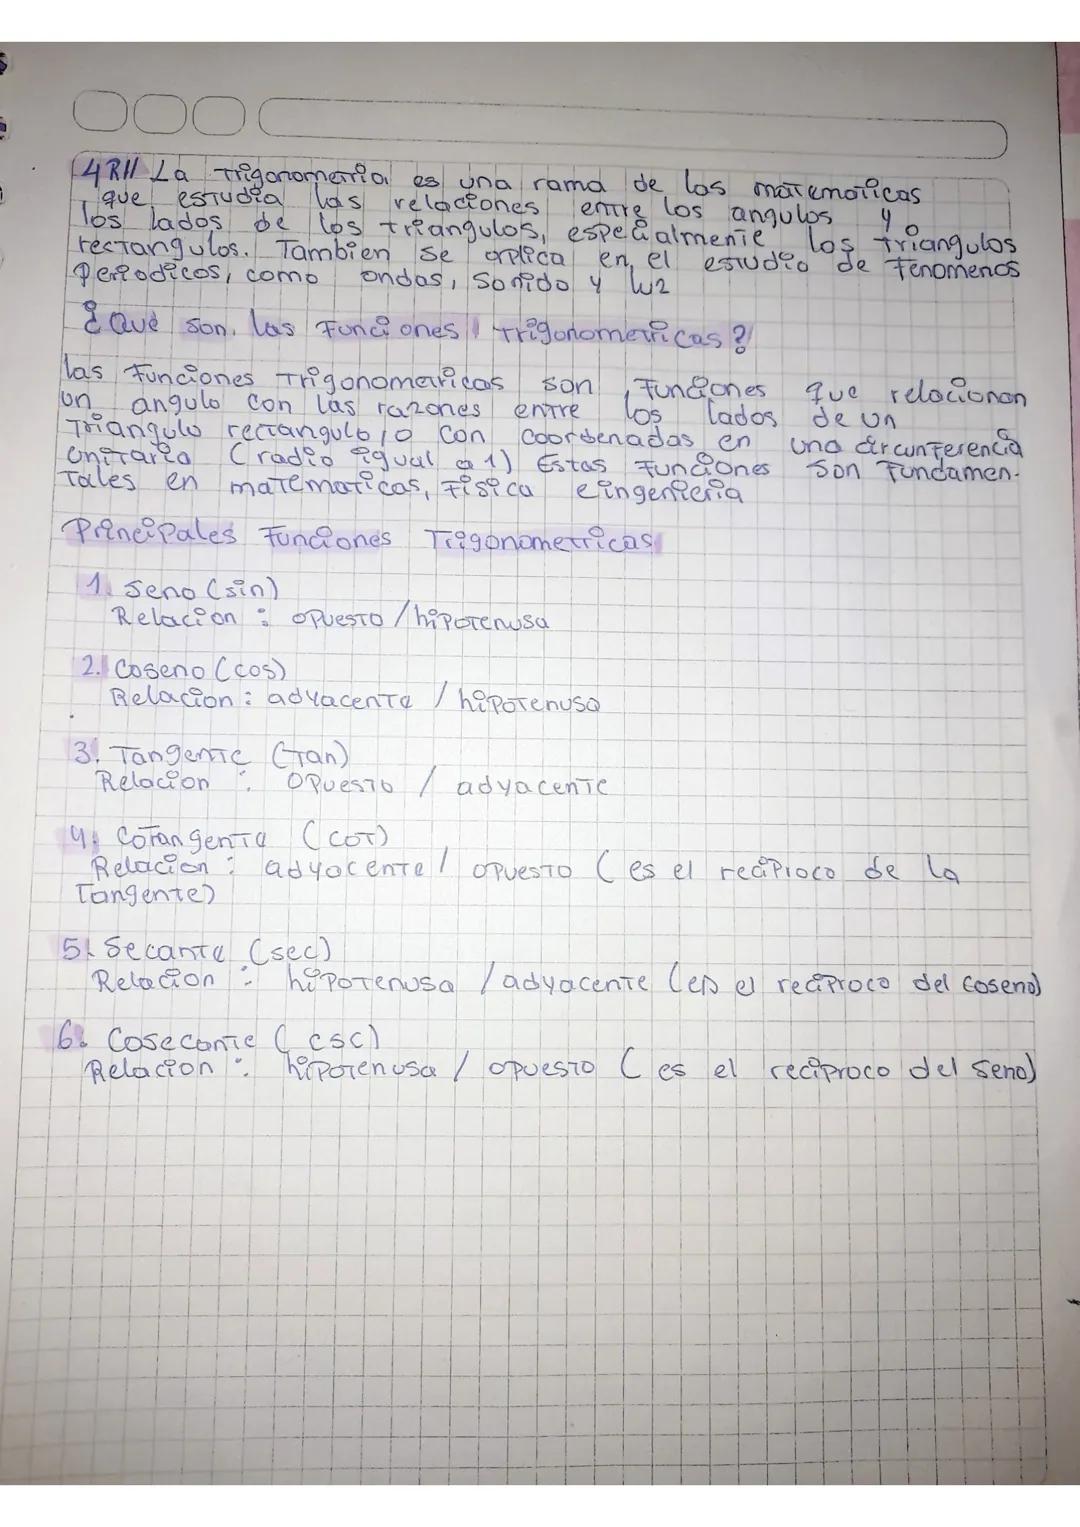 4R// La Trigonometria es una rama de las matematicas
que estudia las relaciones entre los angulos y
los lados de los triangulos, especialmente los triangulos
rectangulos. Tambien se aplica en el estudio de fenomenos
Periodicos, como ondas, sonido y luz
¿Que son las Funciones trigonometricas?
las funciones Trigonometricas son funciones que relacionan
un angulo con las razones entre los lados de un
Triangulo rectangulo, o con coordenadas en una circunferencia
unitaria (radio igual a 1) Estas funciones son Fundamen-
Tales en matematicas, Fisica e ingenieria
Principales Funciones Trigonometricas
1. Seno (sin)
Relacion : opuesto / hipotenusa
2. Coseno (cos)
Relacion : adyacente / hipotenusa
3. Tangente (tan)
Relacion : opuesto / adyacente
4. Cotangente (cot)
Relacion : adyacente / opuesto (es el reciproco de la
Tangente)
5. Secante (sec)
Relacion : hipotenusa / adyacente (es el reciproco del Coseno)
6. Cosecante (csc)
Relacion : hipotenusa / opuesto (es el reciproco del seno)